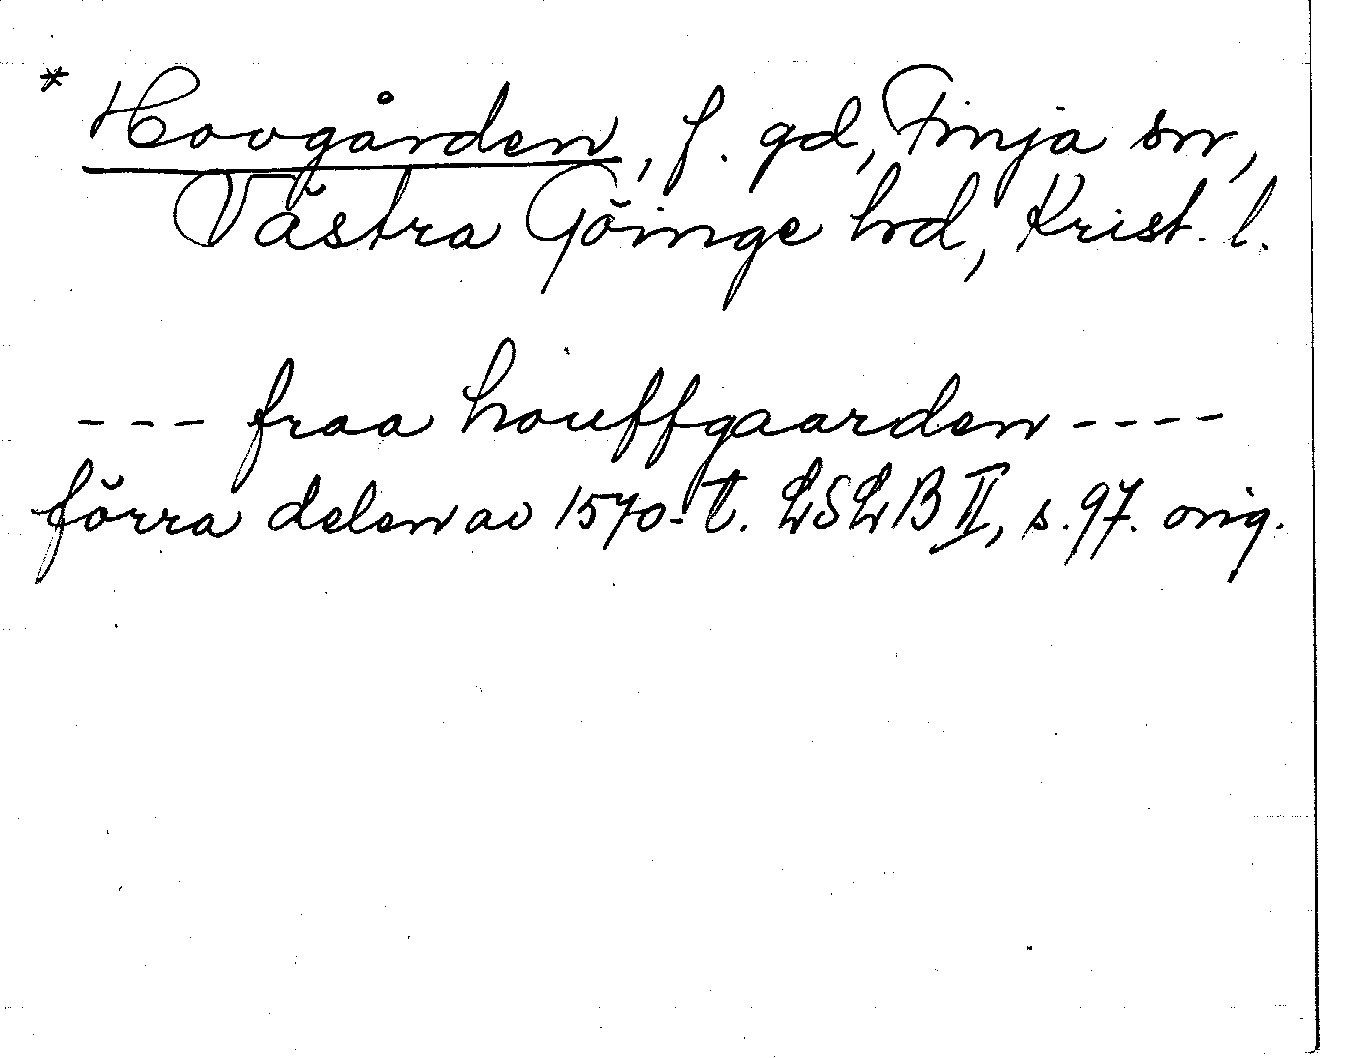 * Hovgården, f. gd, Finja sn,
Västra Göinge hd, Krist. l.
--- fraa houffgaarden ----
förra delen av 1570-t. LSLB II, s. 97. orig.